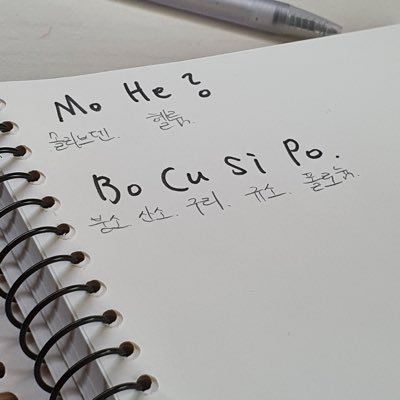 Mo He?
몰리브덴. 헬륨.
Bo Cu Si Po.
붕소. 산소. 구리. 규소. 폴로늄.